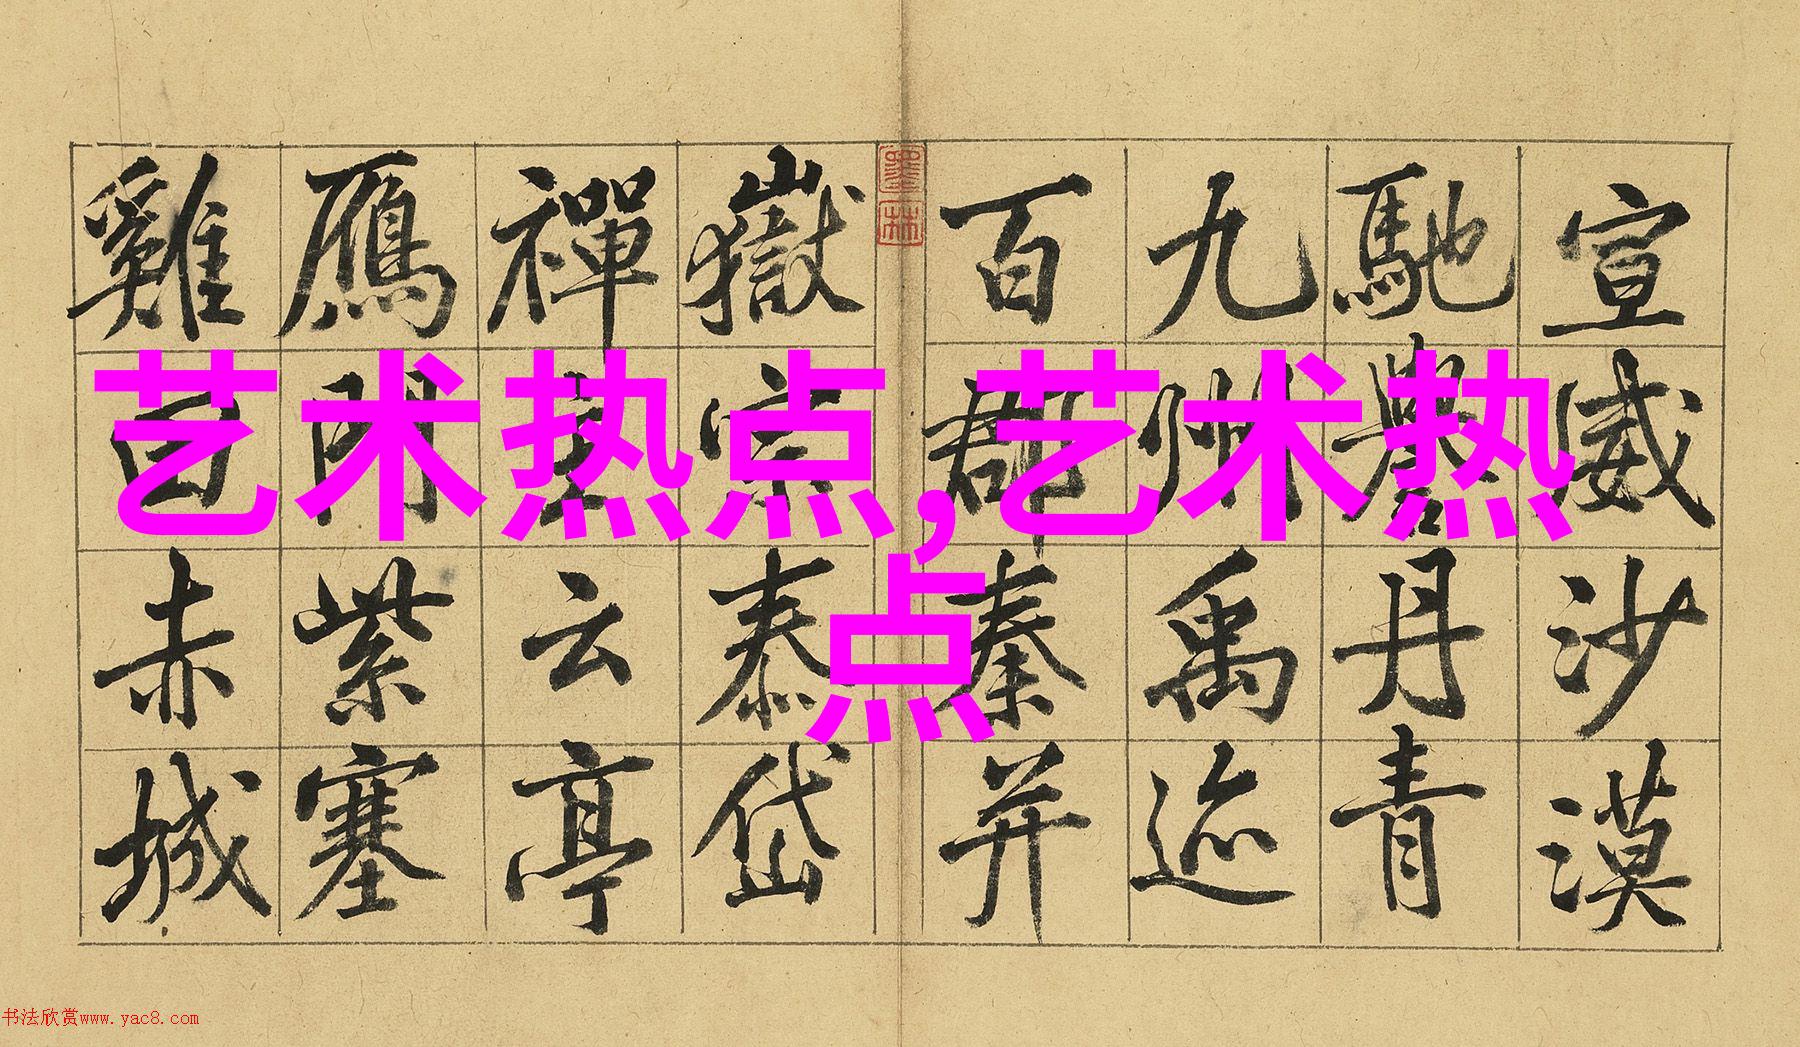 宣威沙漠
馳譽丹青
九州禹迹
百郡秦并
墨林
嶽宗泰岱
禪主云亭
鴈門紫塞
雞田赤城
艺术热点,艺术热
点
书法欣赏www.yac8.com